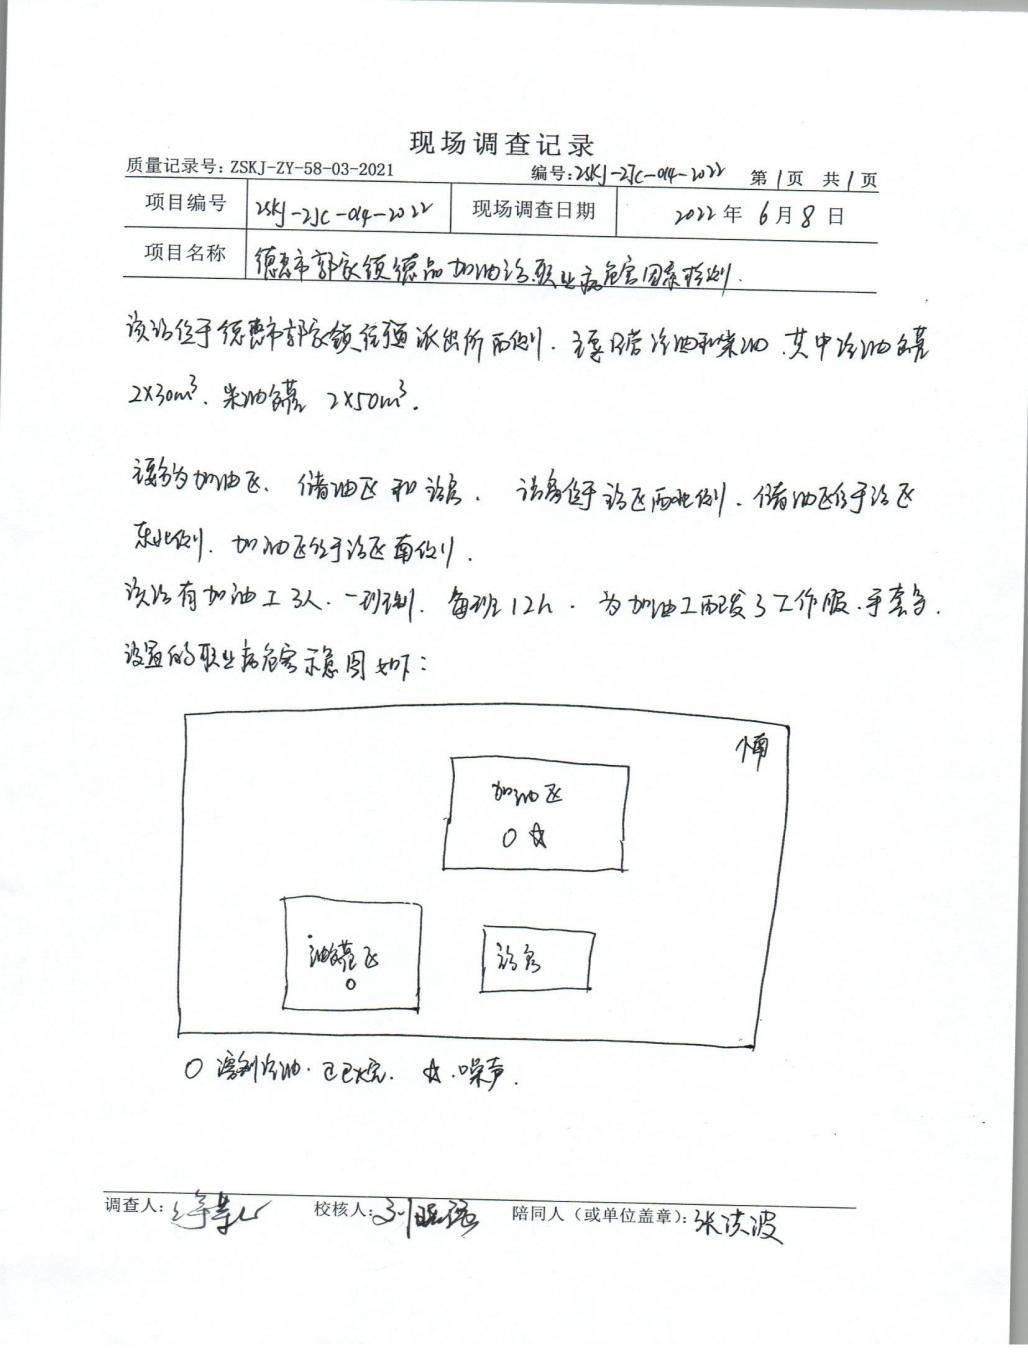 现场调查记录
质量记录号: ZSKJ-ZY-58-03-2021 编号: ZSKJ-ZJC-014-2022 第1页 共1页
项目编号 ZSKJ-ZJC-014-2022 现场调查日期 2022年6月8日
项目名称 德惠市郭家镇德品加油站职业病危害因素检测.
该站位于德惠市郭家镇 派出所西侧. 主要经营汽油和柴油. 其中汽油储罐
2×30m³、柴油储罐 2×50m³.
主要分为加油区、储油区和站房. 站房位于站区西北侧、储油区位于站区
东北侧. 加油区位于站区南侧.
该站有加油工3人. 一班制. 每班12h. 为加油工配发了工作服、手套等.
设置的职业病危害示意图如下:
个南
加油区
○ ☆
油罐区
○
站房
○ 溶剂汽油. 正己烷. ☆.噪声.
调查人: 校核人: 陪同人（或单位盖章）: 张洪波